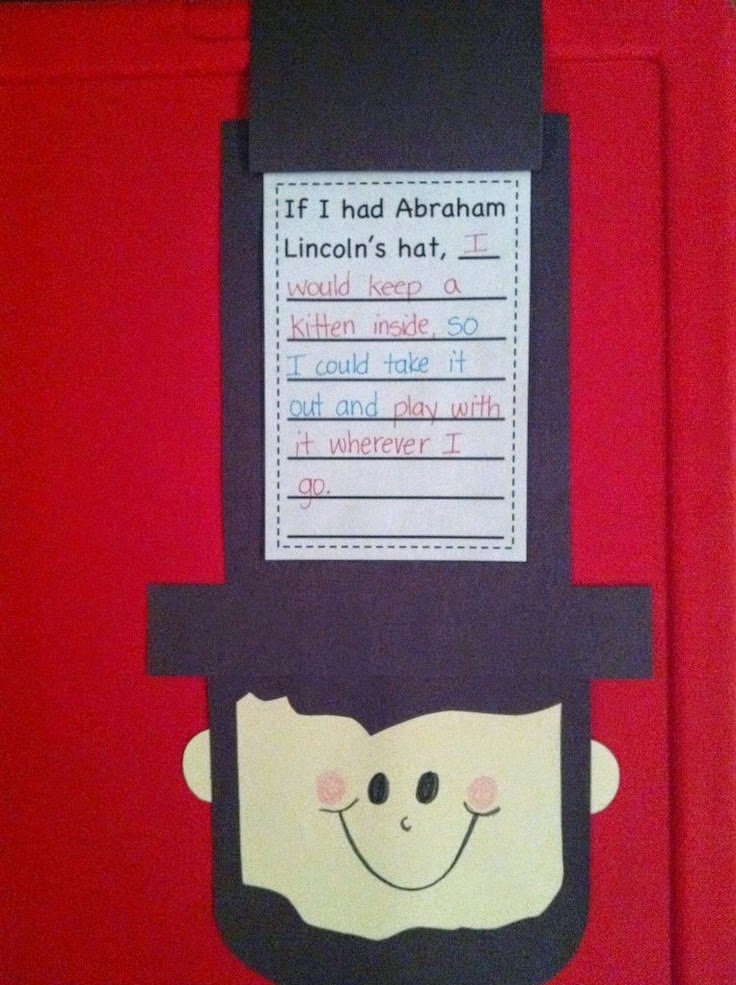 If I had Abraham
Lincoln's hat, I
would keep a
kitten inside, so
I could take it
out and play with
it wherever I
go.